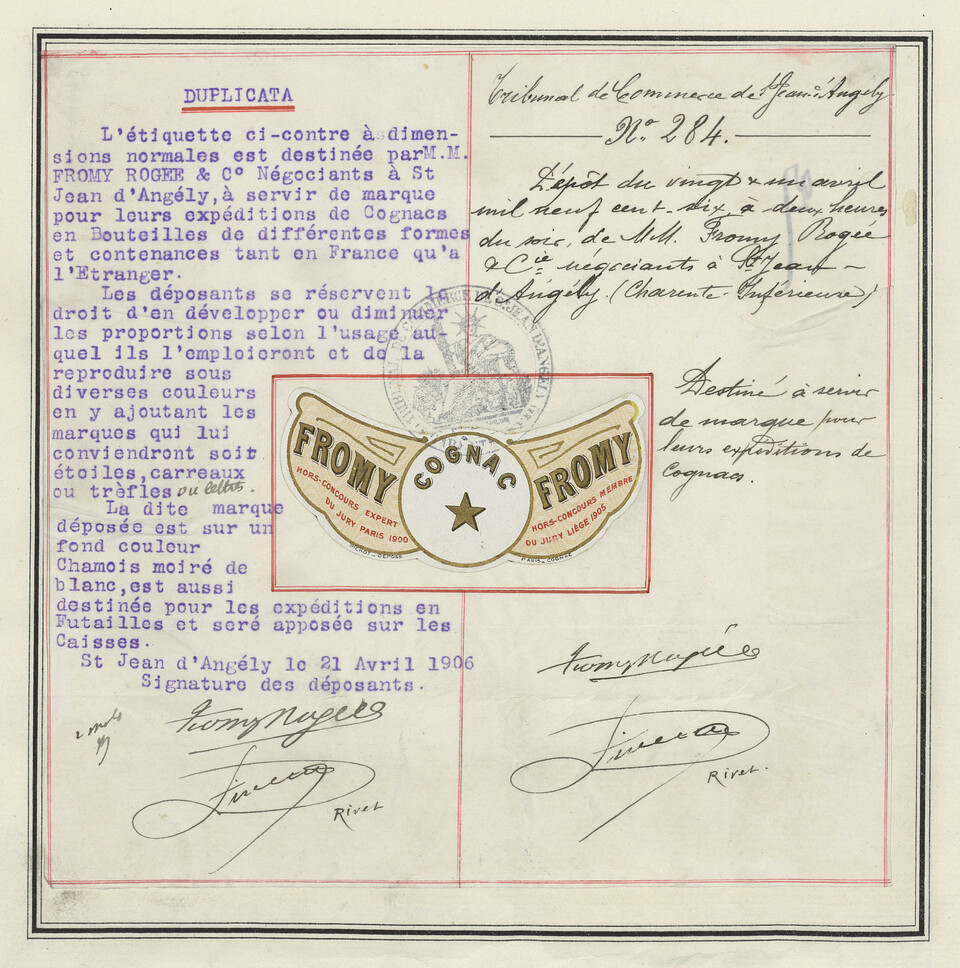 DUPLICATA
L'étiquette ci-contre à dimen-
sions normales est destinée par M.M.
FROMY ROGEE & C° Négociants à St
Jean d'Angély, à servir de marque
pour leurs expéditions de Cognacs
en Bouteilles de différentes formes
et contenances tant en France qu'a
l'Etranger.
Les déposants se réservent le
droit d'en développer ou diminuer
les proportions selon l'usage au-
quel ils l'emploieront et de la
reproduire sous
diverses couleurs
en y ajoutant les
marques qui lui
conviendront soit
étoiles, carreaux
ou trèfles ou lettres.
La dite marque
déposée est sur un
fond couleur
Chamois moiré de
blanc, est aussi
destinée pour les expéditions en
Futailles et seré apposée sur les
Caisses.
St Jean d'Angély le 21 Avril 1906
Signature des déposants.
2 mots
Fromy Rogée &
Rivet
Tribunal de Commerce de St Jean d'Angély
N° 284.
Dépôt du vingt & un avril
mil neuf cent six, à deux heures
du soir, de M.M. Fromy Rogée
& Cie négociants à St Jean-
d'Angély. (Charente-Inférieure)
Destiné à servir
de marque pour
leurs expéditions de
Cognacs.
FROMY
HORS-CONCOURS EXPERT
DU JURY PARIS 1900
COGNAC
FROMY
HORS-CONCOURS MEMBRE
DU JURY LIÈGE 1905
DÉPOSÉ
PARIS-COGNAC
Fromy Rogée &
Rivet.